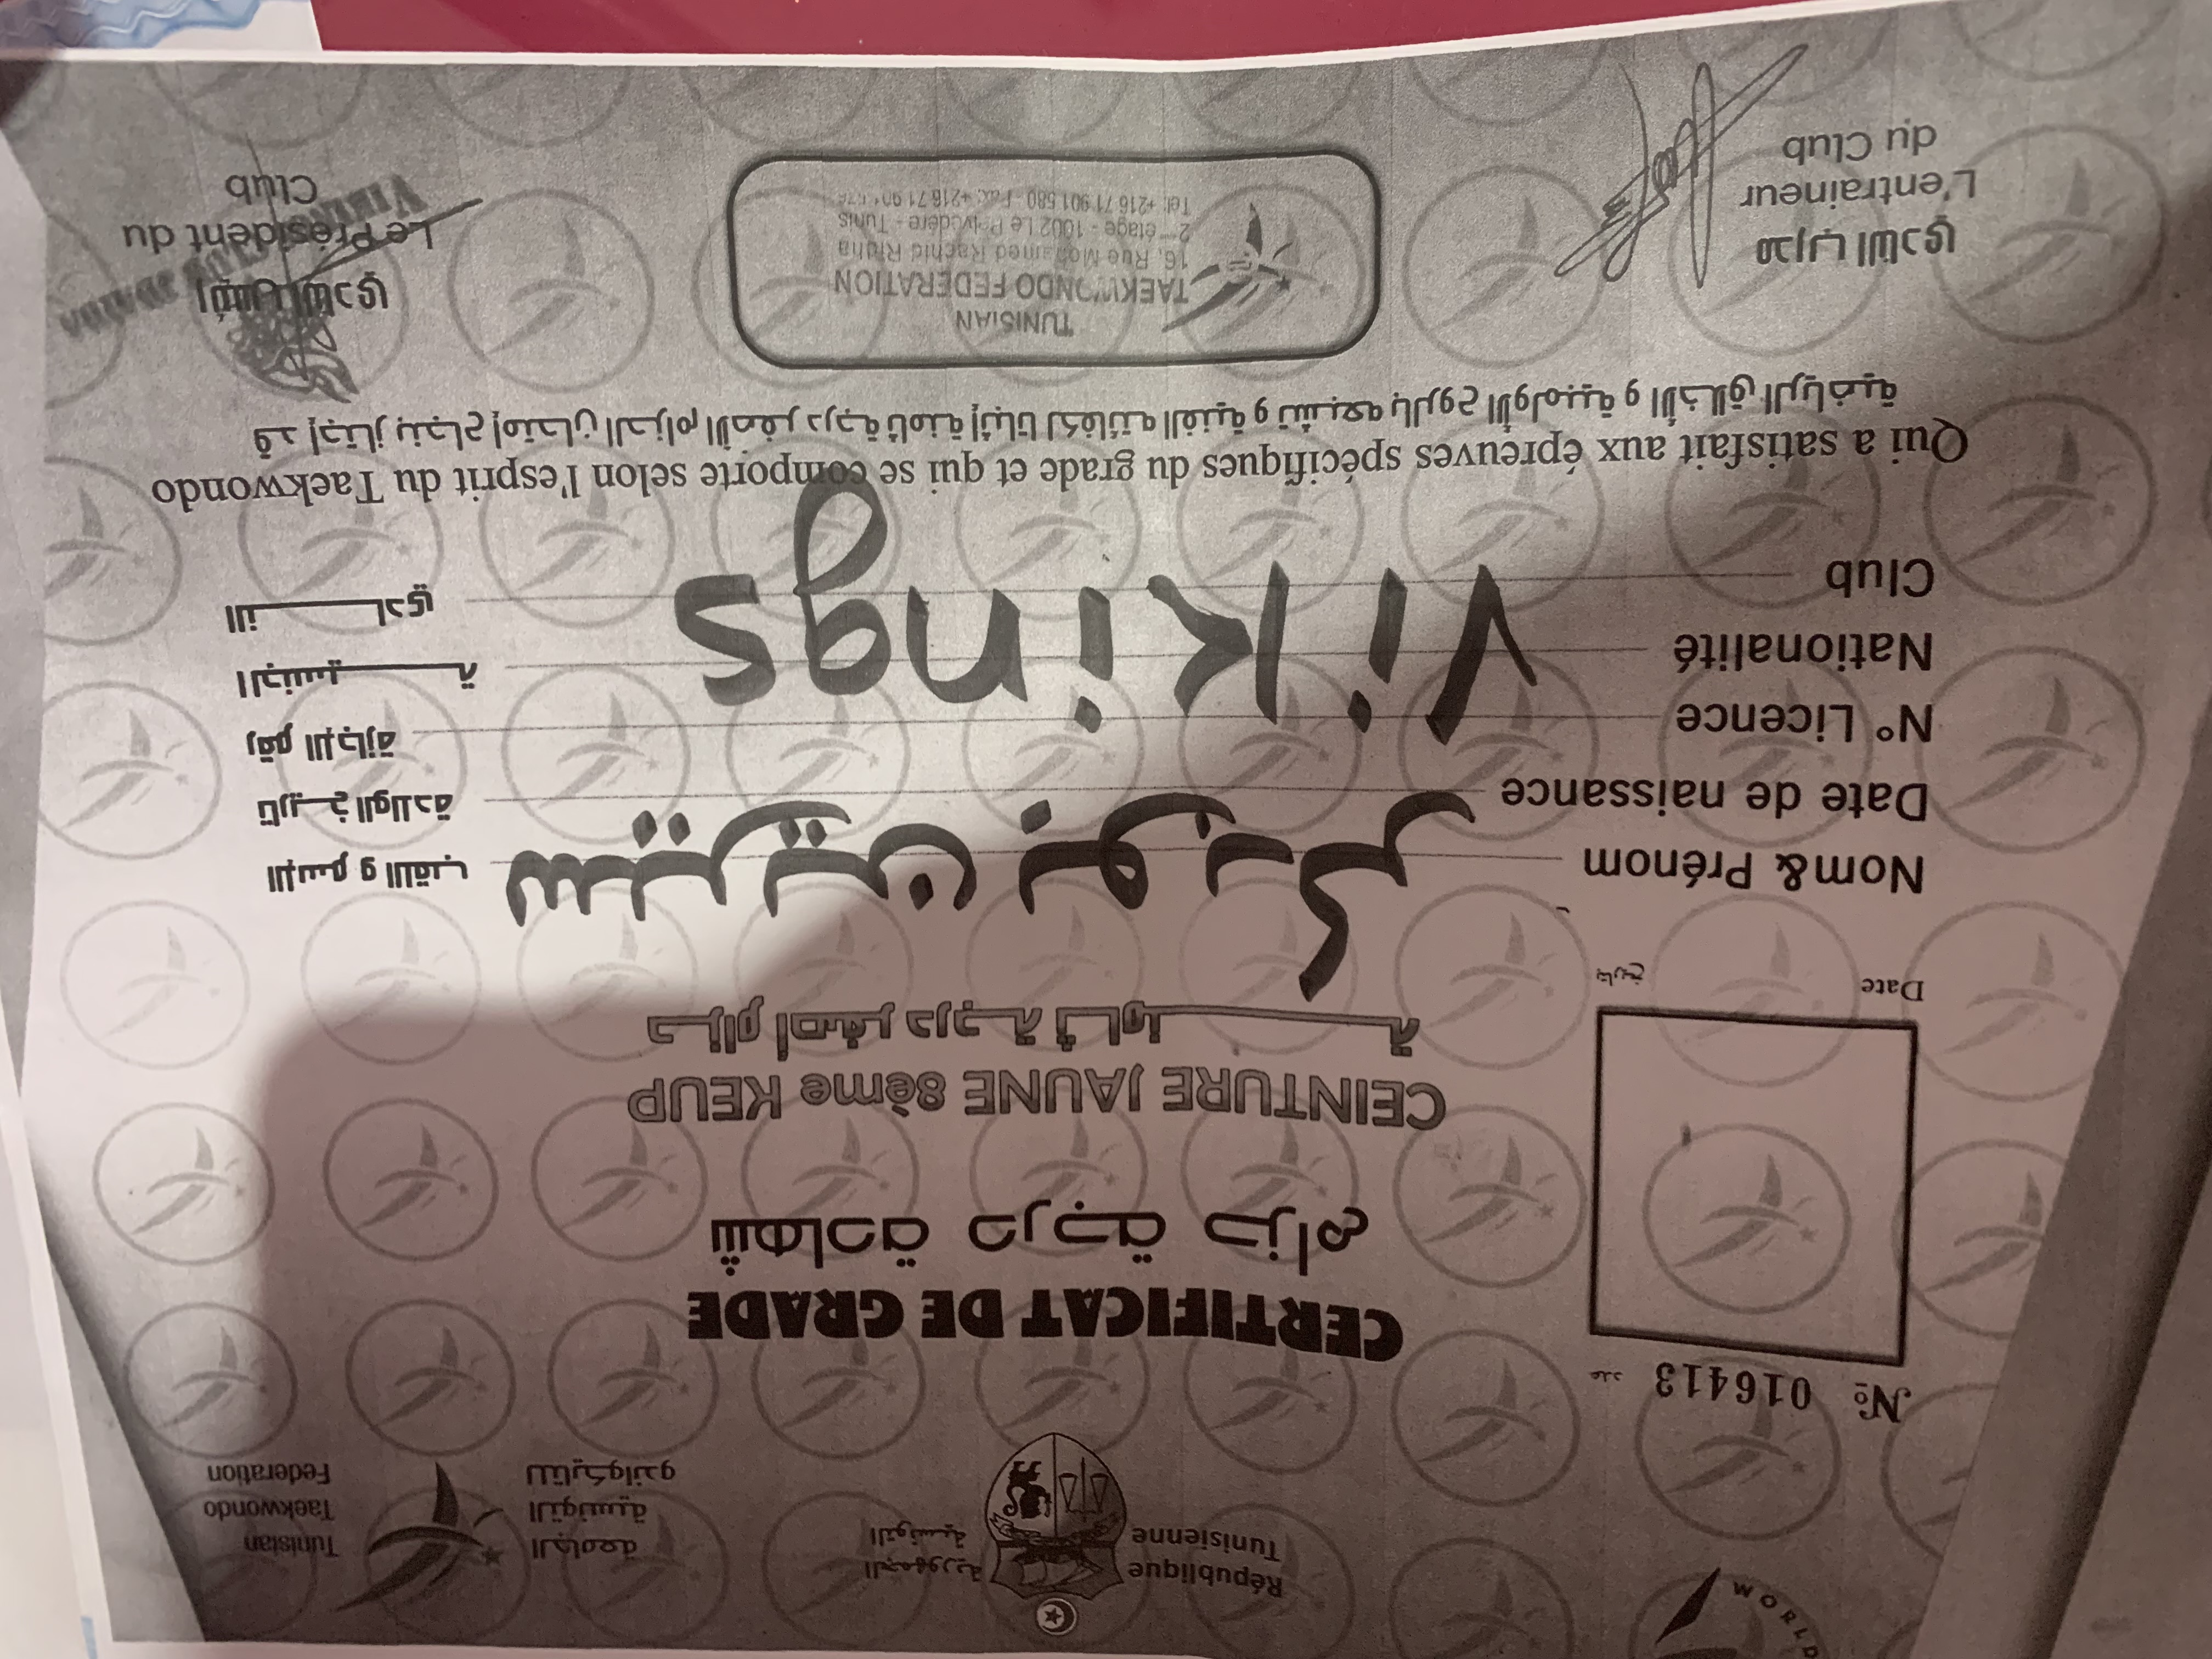 WORLD
République
Tunisienne
الجمهورية
التونسية
الجامعة
التونسية
للتايكواندو
Tunisian
Taekwondo
Federation
№ 016413 عدد
CERTIFICAT DE GRADE
شهادة درجة حزام
CEINTURE JAUNE 8ème KEUP
حزام أصفر درجة ثامنة
Date تاريخ
Nom& Prénom الإسم و اللقب
سيرين بوبكر
Date de naissance تاريخ الولادة
N° Licence رقم الإجازة
Nationalité الجنسية
Vikings
Club النادي
Qui a satisfait aux épreuves spécifiques du grade et qui se comporte selon l'esprit du Taekwondo
قد إجتاز بنجاح إمتحان الحزام الأصفر درجة ثامنة إثباتا لكفائته الفنية و تشبعه بالروح الأولمبية و الأخلاق الرياضية
مدرب النادي
L'entraineur
du Club
TUNISIAN
TAEKWONDO FEDERATION
16, Rue Mohamed Rachid Ridha
2 étage - 1002 Le Belvédère - Tunis
Tel: +216 71 901 580 - Fax: +216 71 901
النادي
Le Président du
Club